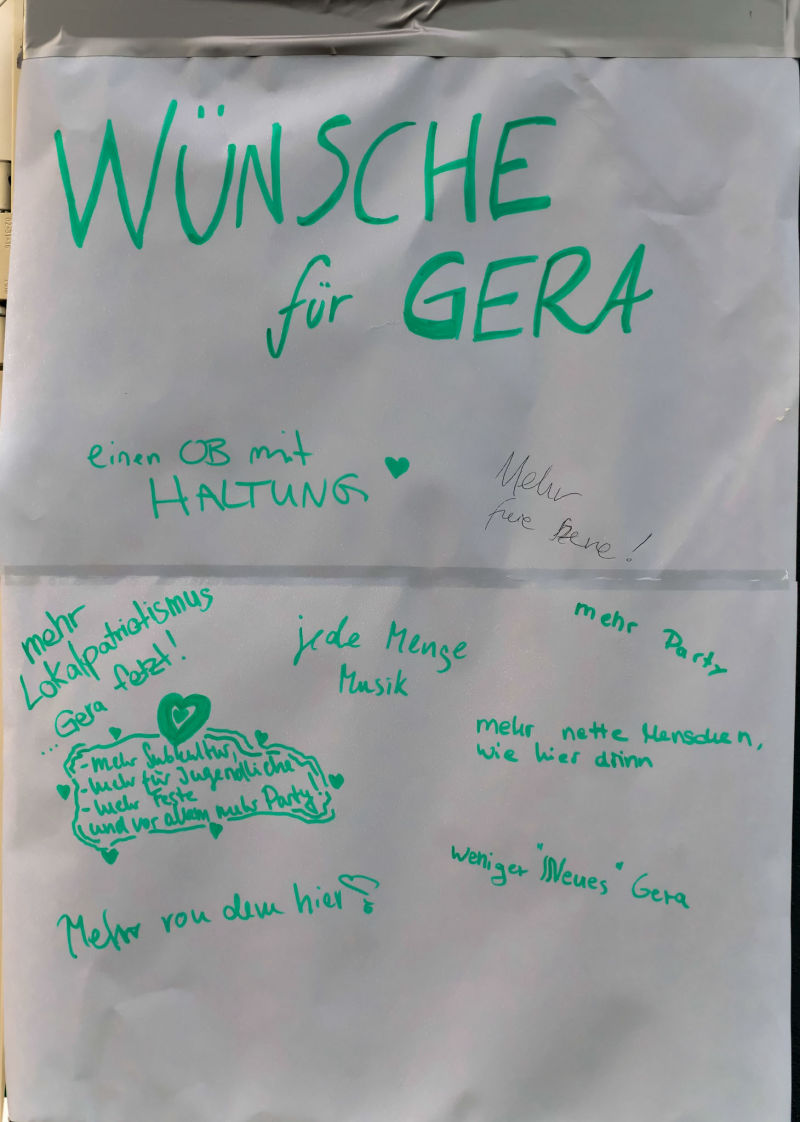 WÜNSCHE
für GERA
einen OB mit
HALTUNG
Mehr
freie Szene!
mehr
Lokalpatriotismus
...Gera fetzt!
jede Menge
Musik
mehr Party
- mehr Subkultur,
- mehr für Jugendliche
- mehr Feste
und vor allem mehr Party!
mehr nette Menschen,
wie hier drinn
weniger "Neues" Gera
Mehr von dem hier